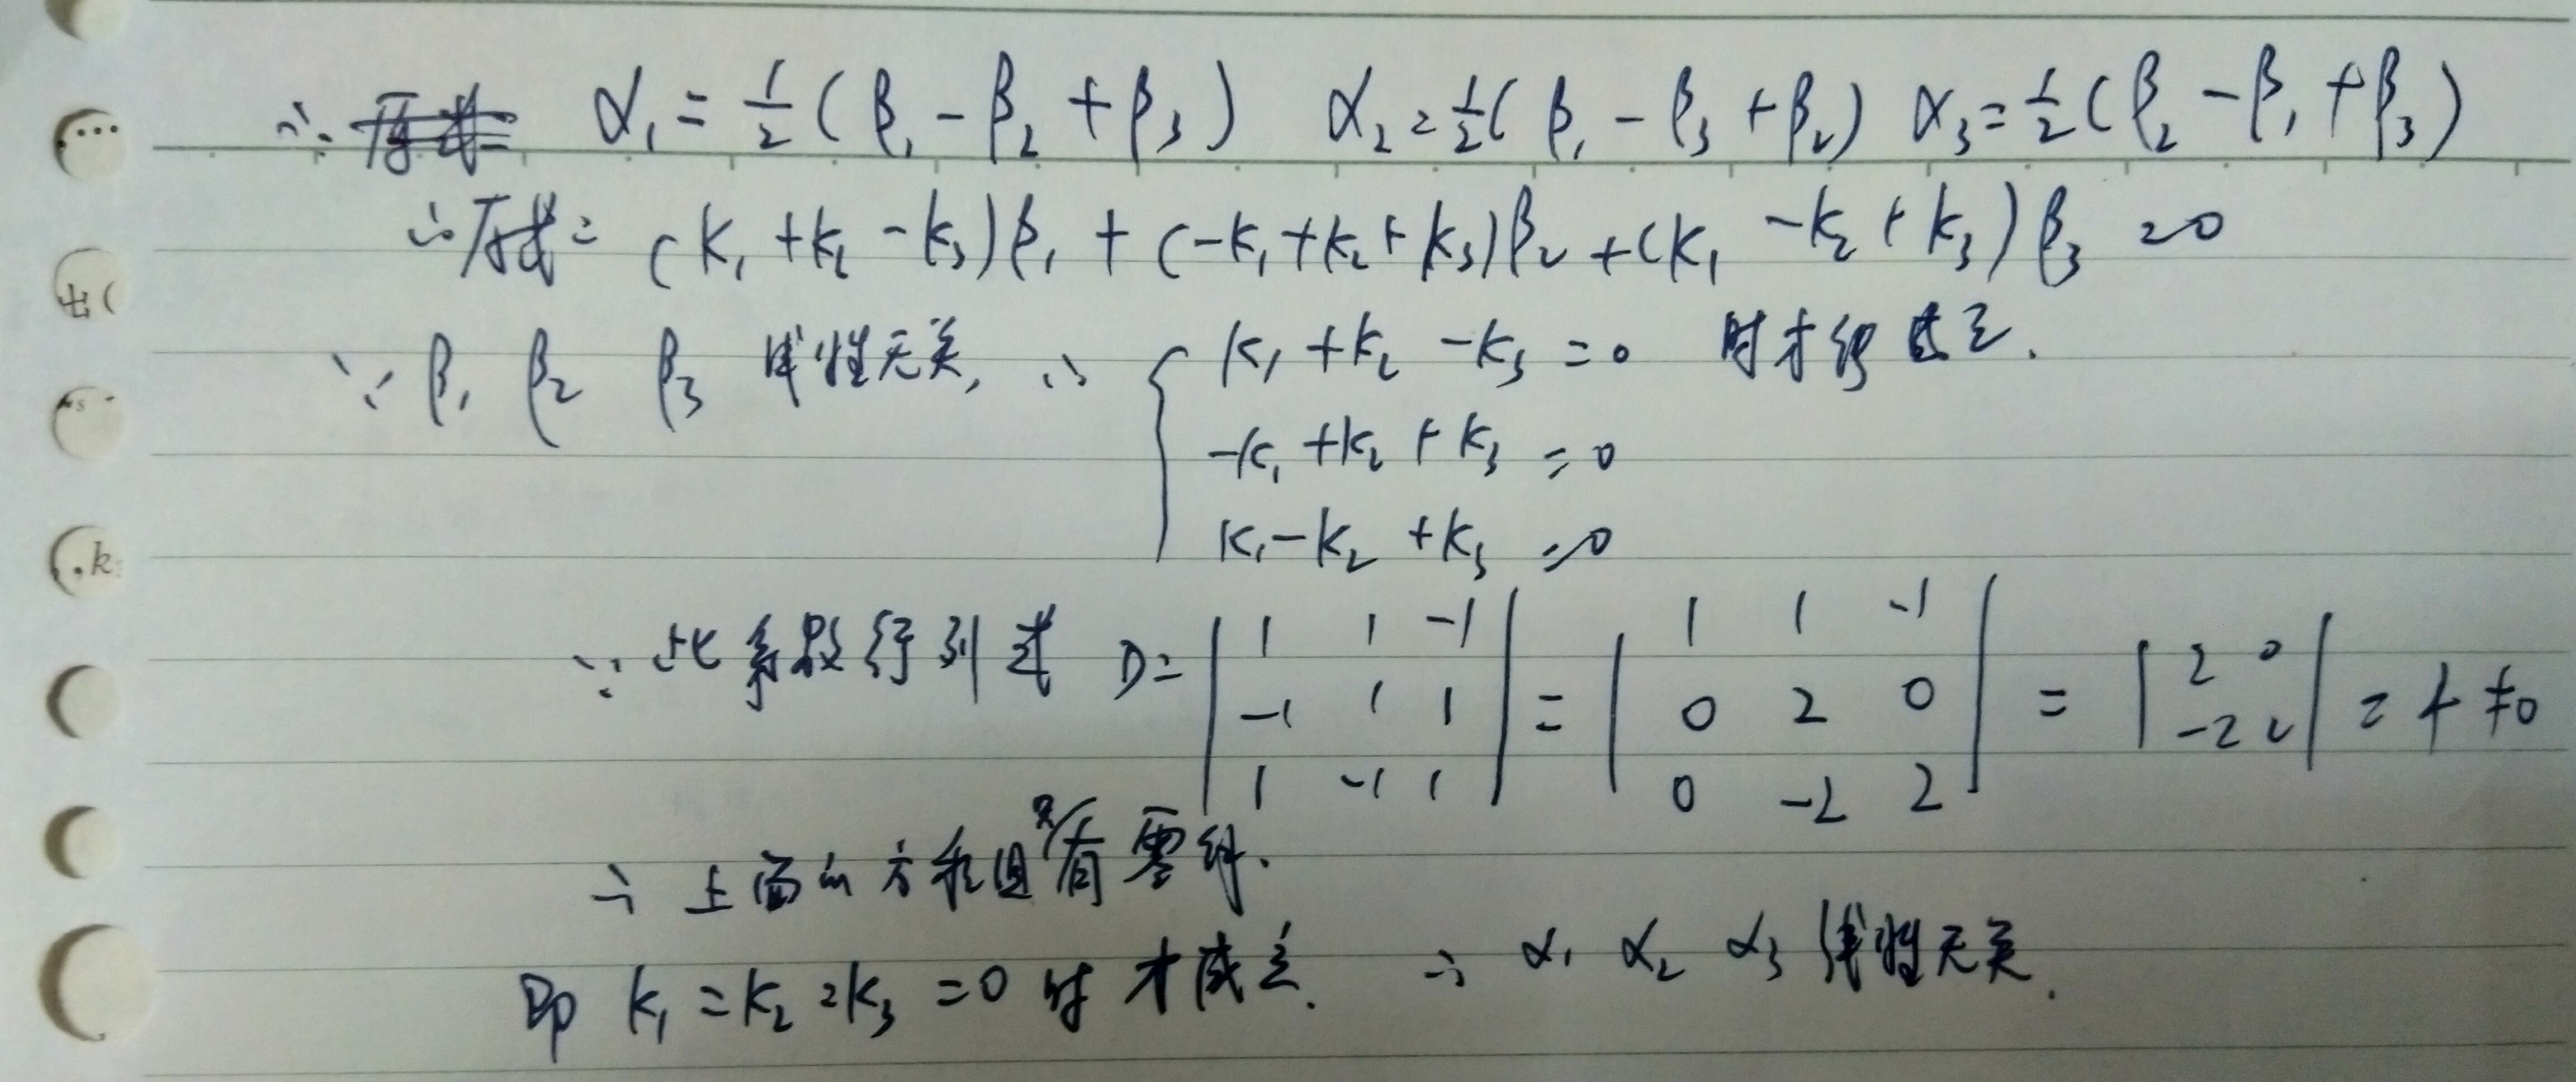 ∴ α₁ = ½(β₁ - β₂ + β₃) α₂ = ½(β₁ - β₃ + β₂) α₃ = ½(β₂ - β₁ + β₃)
∴ 原式 = (k₁ + k₂ - k₃)β₁ + (-k₁ + k₂ + k₃)β₂ + (k₁ - k₂ + k₃)β₃ = 0
∵ β₁ β₂ β₃ 线性无关, ∴ { k₁ + k₂ - k₃ = 0 时才能成立.
-k₁ + k₂ + k₃ = 0
k₁ - k₂ + k₃ = 0
∵ 此系数行列式 D = | 1 1 -1 | = | 1 1 -1 | = | 2 0 | = 4 ≠ 0
| -1 1 1 | | 0 2 0 | | -2 2 |
| 1 -1 1 | | 0 -2 2 |
∴ 上面的方程组只有零解.
即 k₁ = k₂ = k₃ = 0 时才成立. ∴ α₁ α₂ α₃ 线性无关.
出(
.k